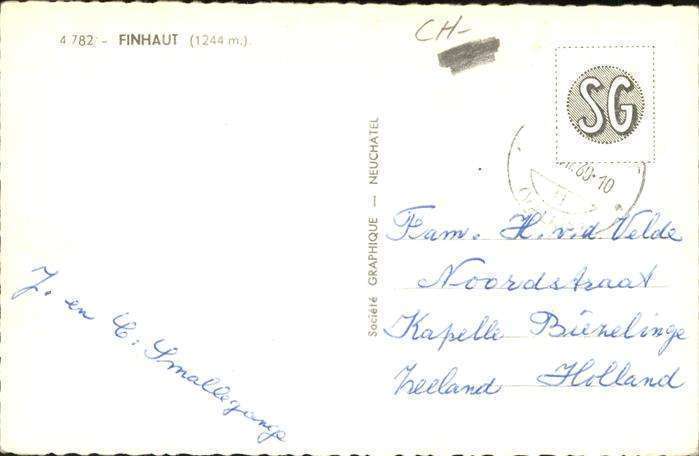 4 782 - FINHAUT (1244 m.)
CH-
SG
60-10
Société GRAPHIQUE — NEUCHATEL
Fam. H. v.d. Velde
Noordstraat
Kapelle Biezelinge
Zeeland Holland
J. en C. Smallegange